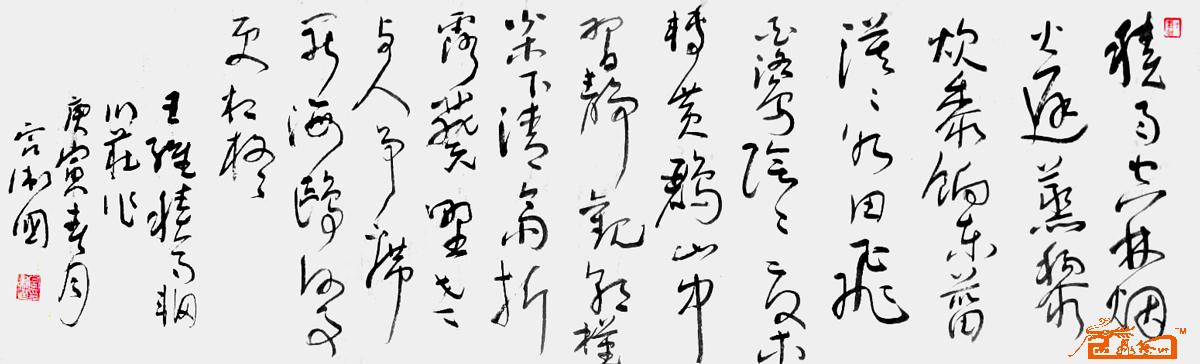 積雨空林烟
火遲蒸藜
炊黍餉东菑
漠〻水田飛
白鷺陰〻夏木
轉黄鸝山中
習静觀朝槿
松下清斋折
露葵野老
与人争席
罷海鷗何事
更相疑
王維積雨輞
川莊作
庚寅春月
國